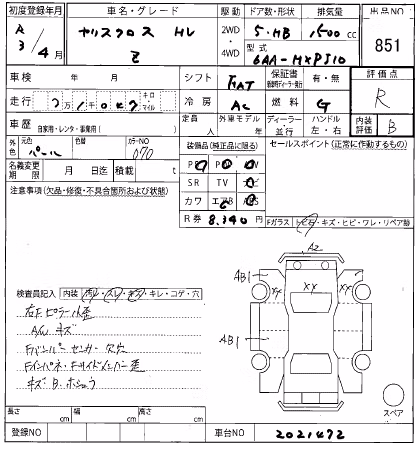 初度登録年月 車名・グレード 駆動 ドア数・形状 排気量 出品NO
R3/4月 ヤリスクロス HV Z 2WD・4WD 5・HB 1500cc 851
型式 6AA-MXPJ10
車検 年 月 シフト FAT 保証書 有・無 評価点
走行 キロ・マイル 冷房 AC 燃料 G R
車歴 自家用・レンタ・事業用( ) 定員 人 外車モデル 年 ディーラー 並行 ハンドル 左・右 内装評価 B
外色 元色 パール 色替 カラーNO 070 装備品(純正品に限る) セールスポイント(正常に作動するもの)
名義変更期限 月 日迄 積載 t
SR TV
注意事項(欠品・修復・不具合箇所および状態) カワ エアB ABS
R券 8,340円
Fガラス トビ石・キズ・ヒビ・ワレ・リペア跡
A2
AB1
XY XX XY
AB1
検査員記入 内装 汚レ・スレ・キズ・キレ・コゲ・穴
右Fピラー小歪
A/W キズ
Fバンパーセンサー欠穴
Fインパネ・Fサイドメンバー歪
キズ B. ホシュウ
スペア
長さ cm 幅 cm 高さ cm
登録NO 車台NO 2021472